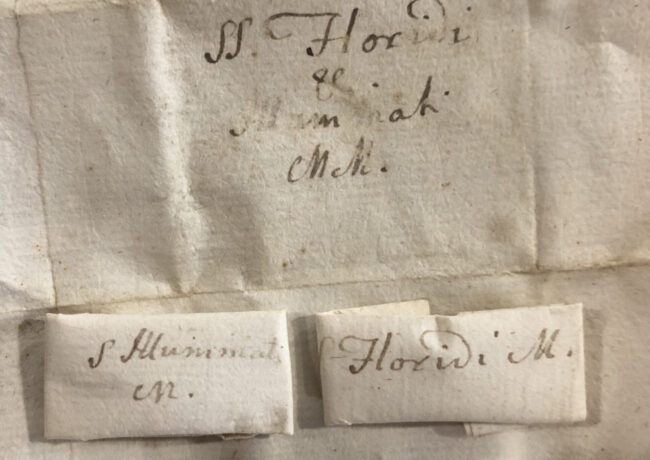 SS. Floridi
&
Illuminati
MM.
S Illuminati
M.
S Floridi M.